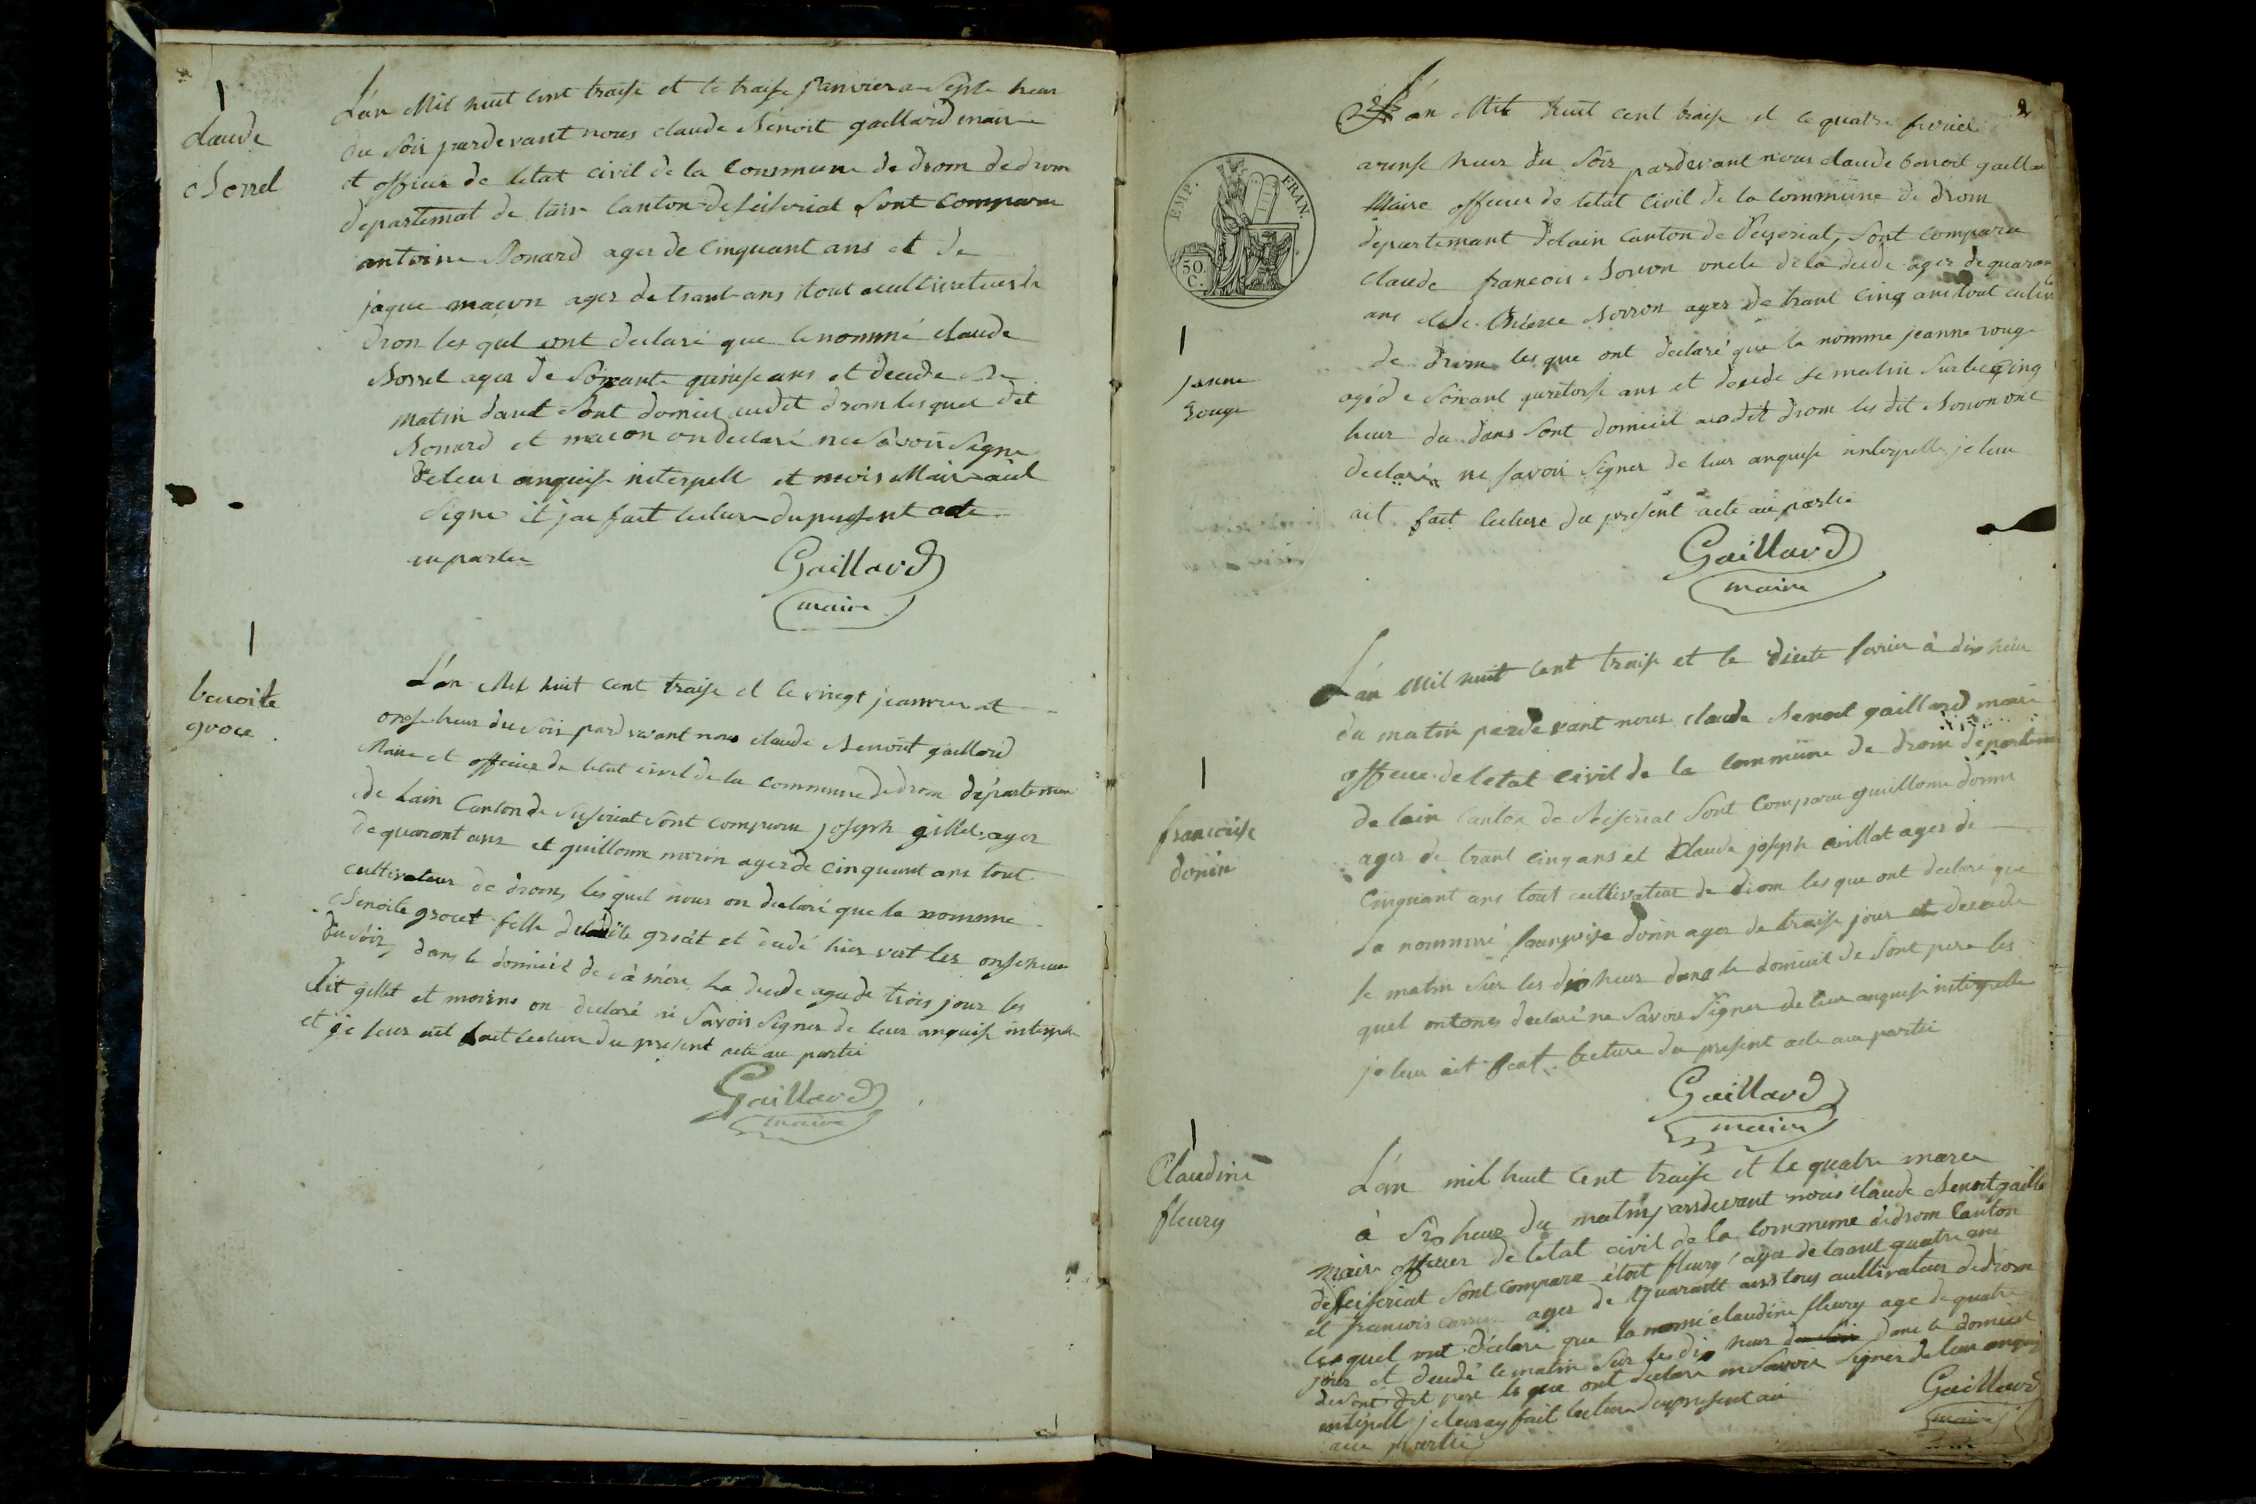 1
claude
Borrel
L'an Mil huit cent traise et le traise janvier a septe heur
du soir pardevant nous claude Benoit gaillard maire
et officier de letat civil de la Commune de drom de drom
departemat de lain Canton de seiseriat sont comparu
antoine Bonard ager de Cinquant ans et de
jaque macon ager de trant ans tout acultivateur de
drom les quel ont declaré que le nommé claude
Borrel ager de soixante quinse ans et decede se
matin dant sont domicil audit drom lesquel dit
Bonard et macon on declaré ne savoir signe
de leur anquise interpelle et mois Maire ait
signe et jai fait lecture du present acte
au partie
Gaillard
maire
1
benoite
groce
L'an Mil huit cent traise et le vingt jeanvier at
onse heur du soir pardevant nous claude Benoit gaillard
Maire et officier de letat civil de la commune de drom départemen
de Lain Canton de seiseriat sont comparu joseph gillet ager
de quarant ans et guillome morin ager de cinquant ans tout
cultivateur de drom, les quel nous on declaré que la nomme
Benoite grocet fille de groat et dudé hier vert les onse heur
du soir, dans le domicil de sa mère La decede age de trois jour les
dit gillet et moirin on declaré ne savoir signer de leur anquise interpele
et je leur ait fait lecture du present acte au partie
Gaillard
maire
2
L'an Mil huit cent traise et le quatre fevrier
a onse heur du soir pardevant nous claude benoit gaillar
Maire officier de letat civil de la commune de drom
departemant delain canton de Ceizeriat, sont comparu
claude francois Borron oncle de la decede ager de quaran
ans et Borron ager de trant cinq ans tout cultiv
de drom les que ont declaré que la nomme jeanne rouge
agé de soixant quatorse ans et decede se matin sur les cinq
heur du dans sont domicil audit drom les dit Borron ont
declaré ne savoir signer de leur anquise interpelle je leur
ait fait lecture du present acte au partie
EMP. FRAN.
50.
C.
1
janne
rouge
Gaillard
maire
1
francoise
donin
L'an Mil huit cent traise et le fevrier à dix heur
du matin pardevant nous claude Benoit gaillard maire
officier de letat civil de la Commune de drom departeme
de lain Canton de Seiseriat sont Comparu guillome donin
ager de trant cinq ans et Claude joseph cuillat ager de
Cinquant ans tout cultivateur de drom les que ont declaré que
La nommé françoise donin ager de traise jour et decede
se matin sur les dix heur dans le domicil de sont pere les
quel ont declaré ne savoir signer de leur anquise interpelle
je leur ait feat lecture du present acte au partie
Gaillard
maire
1
Claudine
fleury
L'an mil huit cent traise et le quatre marce
à six heur du matin pardevant nous claude Benoit gaillar
maire officier de letat civil de la commune de drom Canton
de seiseriat sont comparu fleury ager de trant quatre ans
et francois ager de quarante ans tous cultivateur de drom
les quel ont déclaré que la nomé claudine fleury age de quatre
jour et decedé le matin sur les dix heur du soir dans le domicil
de sont dit pere les que ont declaré ne savoir signer de leur anquis
intepell je leur ay fait lecture du present au
au partie
Gaillard
maire